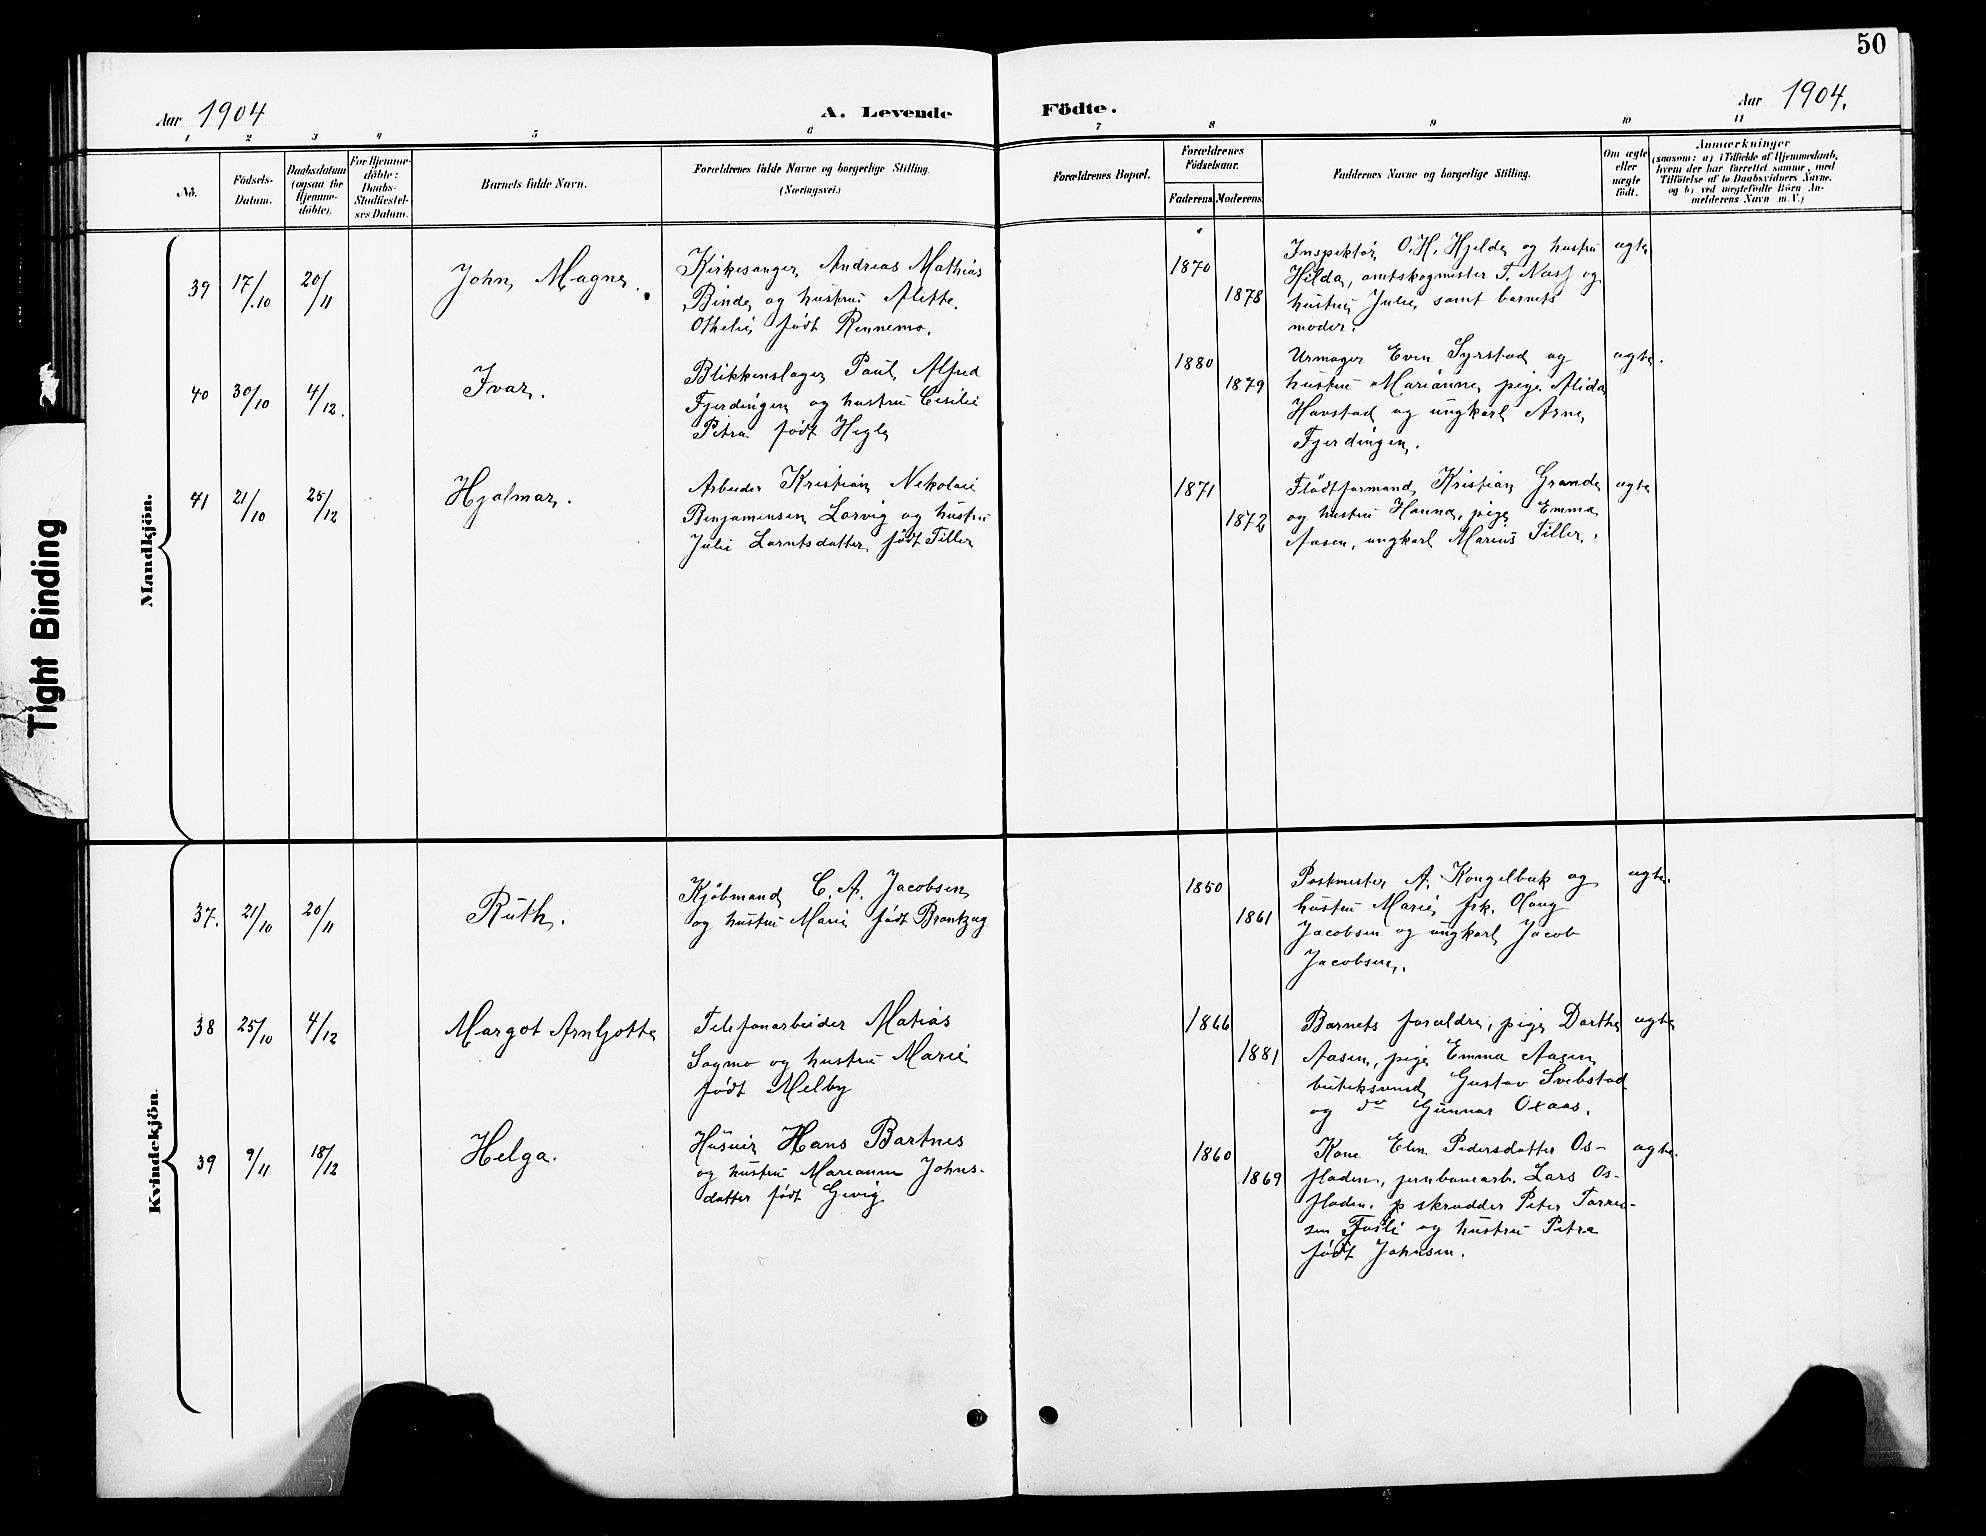 50
Aar 1904
A. Levende
Födte.
Aar 1904.
1 2 3 4 5 6 7 8 9 10 11
No.
Födsels-
Datum.
Daabsdatum
(ogsaa for
Hjemme-
döbte).
For Hjemme-
döbte:
Daabs-
Stadfæstel-
ses Datum.
Barnets fulde Navn.
Forældrenes fulde Navne og borgerlige Stilling.
(Næringsvei.)
Forældrenes Bopæl.
Forældrenes
Födselsaar.
Faderens
Moderens
Faddernes Navne og borgerlige Stilling.
Om ægte
eller
uægte
født.
Anmærkninger
(saasom: a) i Tilfælde af Hjemmedaab,
hvem der har forrettet samme, med
Tilføielse af to Daabsvidners Navne,
og b) ved uægtefödte Börn An-
melderens Navn m. V.)
Tight Binding
Mandkjön.
39 17/10 20/11 John Magne.
Kirkesanger Andreas Mathias
Binde og hustru Alette
Othelie født Rennemo.
1870
1878
Inspektør O. H. Hjelde og hustru
Hilda, amtskogmester T. Næss og
hustru Julie samt barnets
moder.
ægte
40 30/10 4/12. Ivar.
Blikkenslager Paul Alfred
Fjerdingen og hustru Cesilie
Petra født Hegle
1880
1879
Urmager Even Syrstad og
hustru Marianne, pige Alida
Havstad og ungkarl Arne
Fjerdingen.
ægte.
41 21/10 25/12 Hjalmar.
Arbeider Kristian Nikolai
Benjaminsen Lorvig og hustru
Julie Larntsdatter født Tiller
1871
1872
Flødtformand Kristian Grande
og hustru Hanna, pige Emma
Aasen, ungkarl Marius Tiller.
ægte
Kvindekjön.
37. 21/10 20/11 Ruth.
Kjøbmand C. A. Jacobsen
og hustru Marie født Brantzæg
1850
1861
Postmester A. Kongelbæk og
hustru Marie, frk. Olaug
Jacobsen og ungkarl Jacob
Jacobsen.
ægte.
38 25/10 4/12 Margot Arnljotte
Telefonarbeider Matias
Sagmo og hustru Marie
født Melby
1866
1881
Barnets forældre, pige Dorthe
Aasen, pige Emma Aasen
butiksvend Gustav Svebstad
og do Gunnar Oxaas.
ægte
39 9/11 18/12 Helga.
Huseier Hans Bartnes
og hustru Marianne Johns-
datter født Gevig
1860
1869
Kone Elen Pedersdatter Os-
fladen, jernbanearb. Lars Os-
fladen. skrædder Peter Torres-
sen Fosli og hustru Petra
født Johnsen.
ægte.